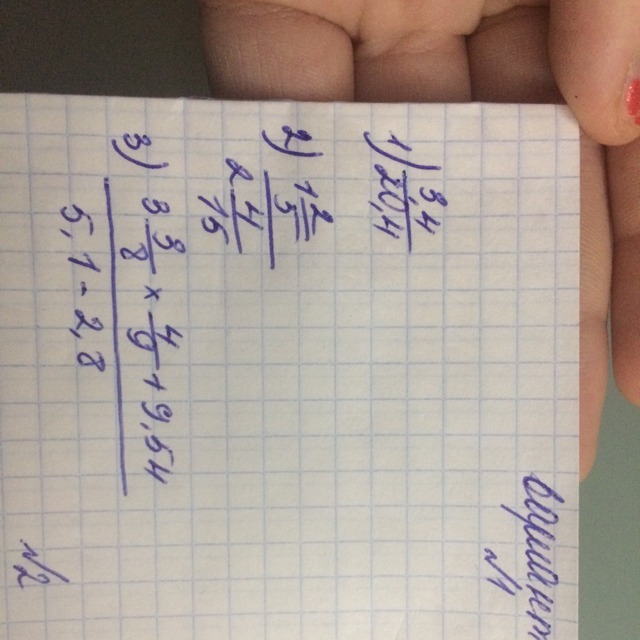 Вариант
№1
1) 34
20,4
2) 1 2/5
2 4/15
3) 3 3/8 × 4/9 + 9,54
5,1 - 2,8
№2